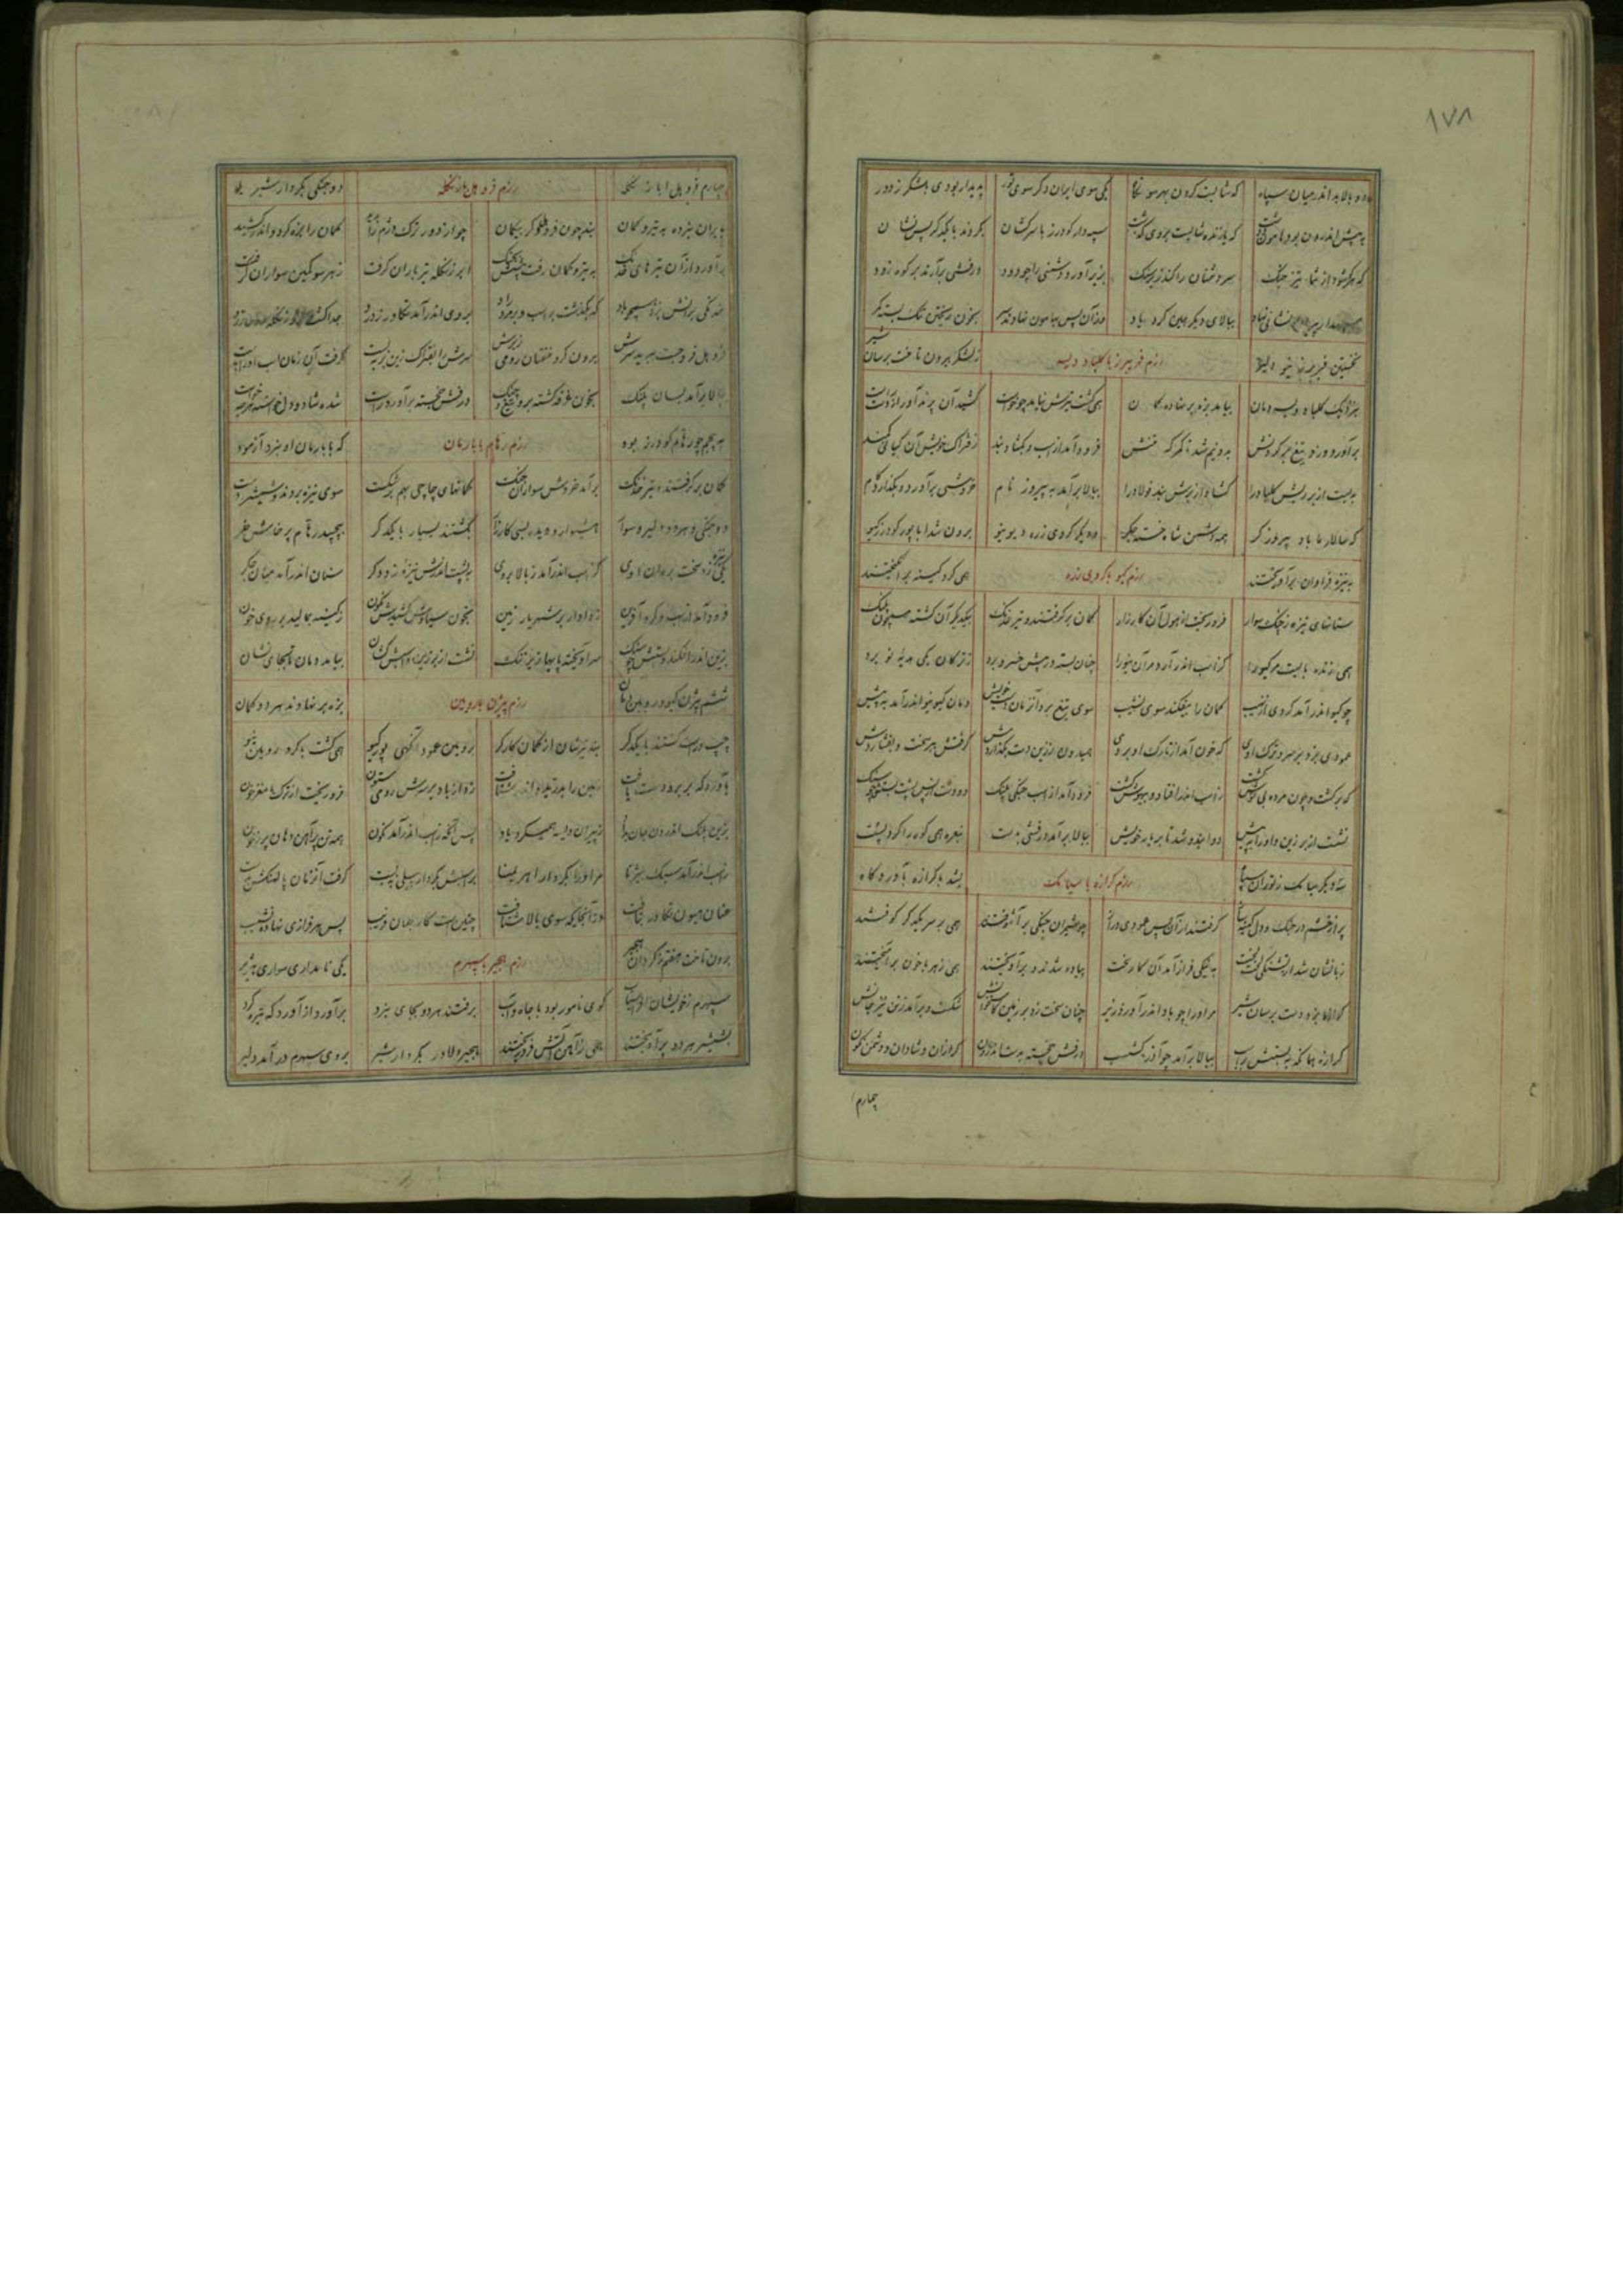 ١٧٨
دو بالا بد اندر میان سپاه که شایست کردن بهر سو نگاه یکی سوی ایران دگر سوی تور پدیدار بودی بلشکر ز دور
به پیش اندرون بود هامون و دشت که تا زنده شایست بروی گذشت سپهدار کودرز با سرکشان بکردند با یکدکر پس نشان
که هرکو شود از شما تیز جنک سر دشمنان را کند زیر سنک بزیر آورد دشمنی را چو دود درفشی برآرند بر کوه زود
سپهدار پیران نشانی نهاد ببالای دیکر همین کرد یاد وزان پس بهامون نهادند سر بخون ریختن تنک بسته کمر
نخستین فریبرز نیو دلیر رزم فریبرز با کلباد ویسه ز لشکر برون تاخت برسان شیر
بنزدیک کلباد ویسه دمان بیامد بزه بر نهاده کمان همی کشت تیرش نیامد چو خواست کشید آن پرند آور از دست راست
برآورد و زد تیغ بر کردنش بدو نیم شد تا کمرکه تنش فرود آمد از اسب و بکشاد بند ز فتراک خویش آن کیانی کمند
به بست از بر زینش کلباد را کشاد از برش بند فولاد را ببالا برآمد به پیروز نام خروشی برآورد و بکذارد کام
که سالار ما باد پیروزکر همه دشمن شاه خسته جکر و دیکر کروی زره دیو نیو برون شد ابا پور کودرز کیو
به نیزه فراوان برآویختند رزم کیو با کروی زره همی کرد کینه برانکیختند
سنانهای نیزه ز چنک سوار فرو ریخت از هول آن کارزار کمان برکرفتند و تیر خدنک بیکدیکر آن کشته همچون پلنک
همی زنده بایست مر کیو را کز اسب اندر آرد مر آن نیو را چنان بسته در پیش خسرو برد ز ترکان یکی هدیه نو برد
چو کیو اندر آمد کروی از نهیب کمان را بیفکند سوی نشیب سوی تیغ برد آن زمان دست خویش دمان کیو نیو اندر آمد به پیش
عمودی بزد بر سر و ترک اوی که خون آمد از تارک او بروی همیدون ز زین دست بکذاردش کرفتش ببر سخت و بفشاردش
که برکشت و چون مرده بی توش کشت ز اسب اندر افتاد و بیهوش کشت فرود آمد از اسب جنکی پلنک دو دست از پس پشت بستش چو سنک
نشست از بر زین و او را به پیش دوانید و شد تا بر یار خویش ببالا برآمد درفشی بدست بنعره همی کوه را کرد پست
سه دیکر سیامک ز توران سپاه رزم کرازه با سیامک بشد با کرازه بآوردکاه
پر از خشم در جنک و دل کینه ساز کرفتند ازان پس عمودی دراز چو شیران جنکی برآشوفتند همی بر سر یکدکر کوفتند
زبانشان شد از تشنکی لخت لخت به تنکی فراز آمد آن کار سخت پیاده شدند و برآویختند همی زهر با خون برآمیختند
کرازه بزد دست برسان شیر مر او را چو باد اندر آورد زیر چنان سخت زد بر زمین کاستخوانش شکست و برآمد ز تن نیز جانش
کرازه همانکه ببستش بر اسب ببالا برآمد چو آذرکشسب درفش خجسته بدست اندرون کرازان و شادان و دشمن نکون
چهارم
چهارم فروهل ابا زنکله رزم فروهل با زنکله دو جنکی بکردار شیر یله
بایران نبرده به تیر و کمان نبد چون فروهل دکر بیکمان چو از دور ترک دژم را بدید کمان را بزه کرد و اندر کشید
برآورد ازان تیرهای خدنک به تیر و کمان رفت جستش بجنک ابر زنکله تیرباران کرفت ز هر سو کمین سواران کرفت
خدنکی برانش بزد همچو باد که بکذشت بر اسب و بر مرد راد بروی اندر آمد تکاور ز درد جدا کشت ازو زنکله روی زرد
فروهل فرو جست ببرید سرش برون کرد خفتان رومی ز برش سرش را بفتراک زین بربست کرفت آن زمان اسب او را بدست
ببالا برآمد بسان پلنک بخون غرقه کشته بر و تیغ و چنک درفش خجسته برآورد راست شده شاد دل یافته هر چه خواست
به پنجم چو رهام کودرز بود رزم رهام با بارمان که با بارمان او نبرد آزمود
کمان برکرفتند و تیر خدنک برآمد خروش سواران جنک کمانهای چاچی بهم برشکست سوی نیزه بردند و شمشیر دست
دو جنکی و هر دو دلیر و سوار هشیوار و دیده بسی کارزار بکشتند بسیار با یکدکر بپیچید رهام پرخاشخر
یکی نیزه زد سخت بر ران اوی کز اسب اندر آمد ز بالا بروی به پشت اندرش نیزه زد دکر سنان اندر آمد میان جکر
فرود آمد از اسب و کرد آفرین ز دادار بر شهریار زمین بخون سیاوش کشیدش نکون ز کینه بمالید بر روی خون
بزین اندر افکند و بستش چو سنک سر آویخته پایها زیر تنک نشست از بر زین و اسبش کشان بیامد دمان تا بجای نشان
ششم بیژن کیو و رویین دمان رزم بیژن با رویین بزه بر نهادند هر دو کمان
چپ و راست کشتند با یکدکر نبد تیرشان از کمان کارکر برویین عمود آنکهی پور کیو همی کشت با کرد رویین نیو
بآوردکه بر برو دست یافت زمین را بدرید و اندر شتافت زد از باد بر سرش رومی ستون فرو ریخت از ترک با مغز خون
بزین پلنک اندرون جان بداد ز پیران ویسه همیکرد یاد پس آنکه ز اسب اندر آمد نکون همه تن پر آهن دهان پر ز خون
ز اسب اندر آمد سبک بیژنا مر او را بکردار اهریمنا بر اسبش بکردار پیلی ببست کرفت آنزمان پالهنکش بدست
عنان هیون تکاور بتافت وز آنجایکه سوی بالا شتافت چنین است کار جهان فریب پس هر فرازی نهاده نشیب
برون تاخت هفتم ز کردان هجیر رزم هجیر با سپهرم یکی نامداری سواری هژیر
سپهرم ز خویشان افراسیاب کوی نامور بود با جاه و آب برفتند هر دو بجای نبرد برآورد از آوردکه تیره کرد
بشمشیر هر دو برآویختند همی ز آهن آتش فرو ریختند هجیر دلاور بکردار شیر بروی سپهرم درآمد دلیر